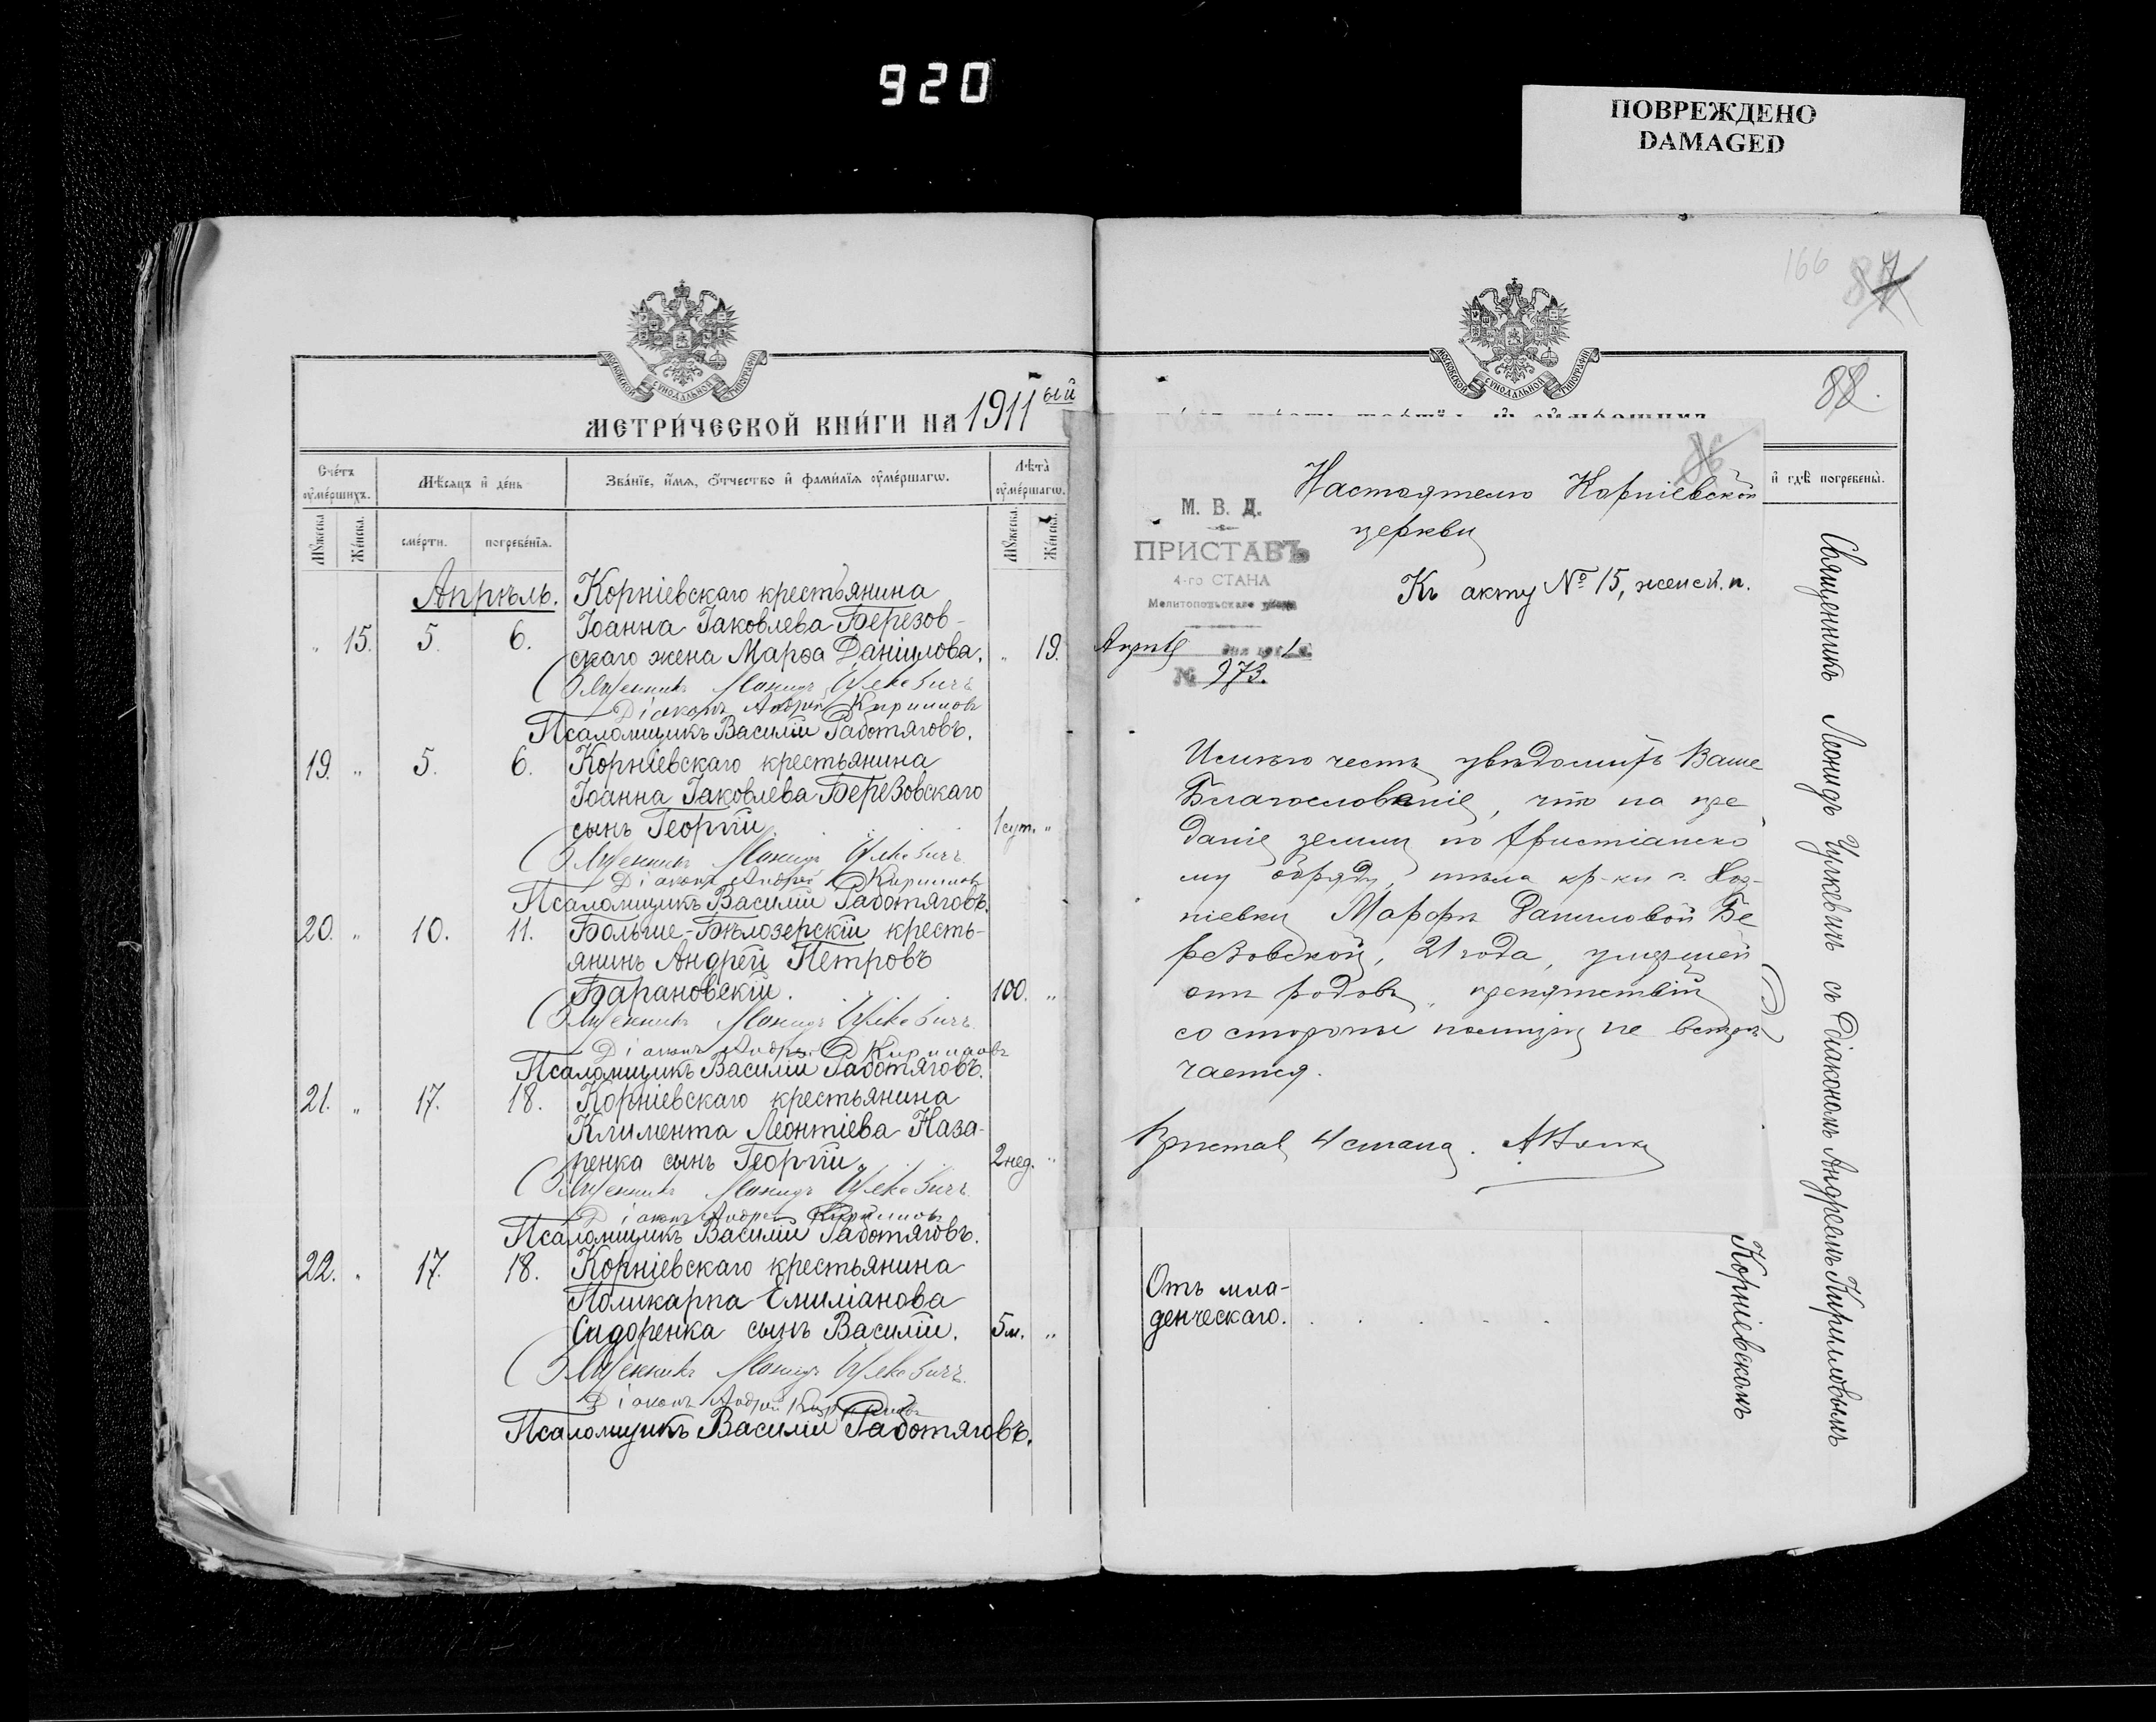 920
ПОВРЕЖДЕНО
DAMAGED
166
87
88.
МОСКОВСКОЙ СУНОДАЛЬНОЙ ТИПОГРАФІИ
МЕТРИ́ЧЕСКОЙ КНИ́ГИ НА 1911ый
Сче́тъ оу҆ме́ршихъ.
Мѣ́сяцъ и҆ де́нь
Зва́нїе, и҆́мѧ, ѻ҆́тчество и҆ фами́лїѧ оу҆ме́ршагѡ.
Лѣ́та оу҆ме́ршагѡ.
Мꙋ́жеска.
Же́нска.
сме́рти.
погребе́нїѧ.
Мꙋ́жеска.
Же́нска.
Апрѣль.
Корніевскаго крестьянина
Іоанна Іаковлева Березов-
" 15. 5. 6. скаго жена Марѳа Даніилова. " 19.
Священникъ Леонидъ Цулкевичъ
Діаконъ Андрей Кирилловъ
Псаломщикъ Василій Работяговъ.
19. " 5. 6. Корніевскаго крестьянина
Іоанна Іаковлева Березовскаго
сынъ Георгій. 1 сут. "
Священникъ Леонидъ Цулкевичъ
Діаконъ Андрей Кирилловъ
Псаломщикъ Василій Работяговъ.
20. " 10. 11. Больше-Бѣлозерскій кресть-
янинъ Андрей Петровъ
Барановскій. 100. "
Священникъ Леонидъ Цулкевичъ
Діаконъ Андрей Кирилловъ
Псаломщикъ Василій Работяговъ.
21. " 17. 18. Корніевскаго крестьянина
Климента Леонтіева Наза-
ренка сынъ Георгій. 2 нед. "
Священникъ Леонидъ Цулкевичъ
Діаконъ Андрей Кирилловъ
Псаломщикъ Василій Работяговъ.
22. " 17. 18. Корніевскаго крестьянина
Поликарпа Емиліанова
Сидоренка сынъ Василій. 5 м. "
Священникъ Леонидъ Цулкевичъ
Діаконъ Андрей Кирилловъ
Псаломщикъ Василій Работяговъ.
МОСКОВСКОЙ СУНОДАЛЬНОЙ ТИПОГРАФІИ
и҆ гдѣ̀ погребены̀.
86
М. В. Д.
ПРИСТАВЪ
4-го СТАНА
Мелитопольскаго уѣзда
№ 973.
Настоятелю Корніевской
церкви
Къ акту № 15, женск. п.
Имѣю честь увѣдомить Ваше
Благословеніе, что на пре
даніе землѣ по христіанско
му обряду, тѣла кр-ки с. Кор-
ніевки Марфы Даниловой Бе
резовской, 21 года, умершей
отъ родовъ, препятствій
со стороны полиціи не встрѣ
чается.
Приставъ 4 стана.
Отъ мла-
денческаго.
Корніевскомъ
Священникъ Леонидъ Цулкевичъ съ Діакономъ Андреемъ Кирилловымъ